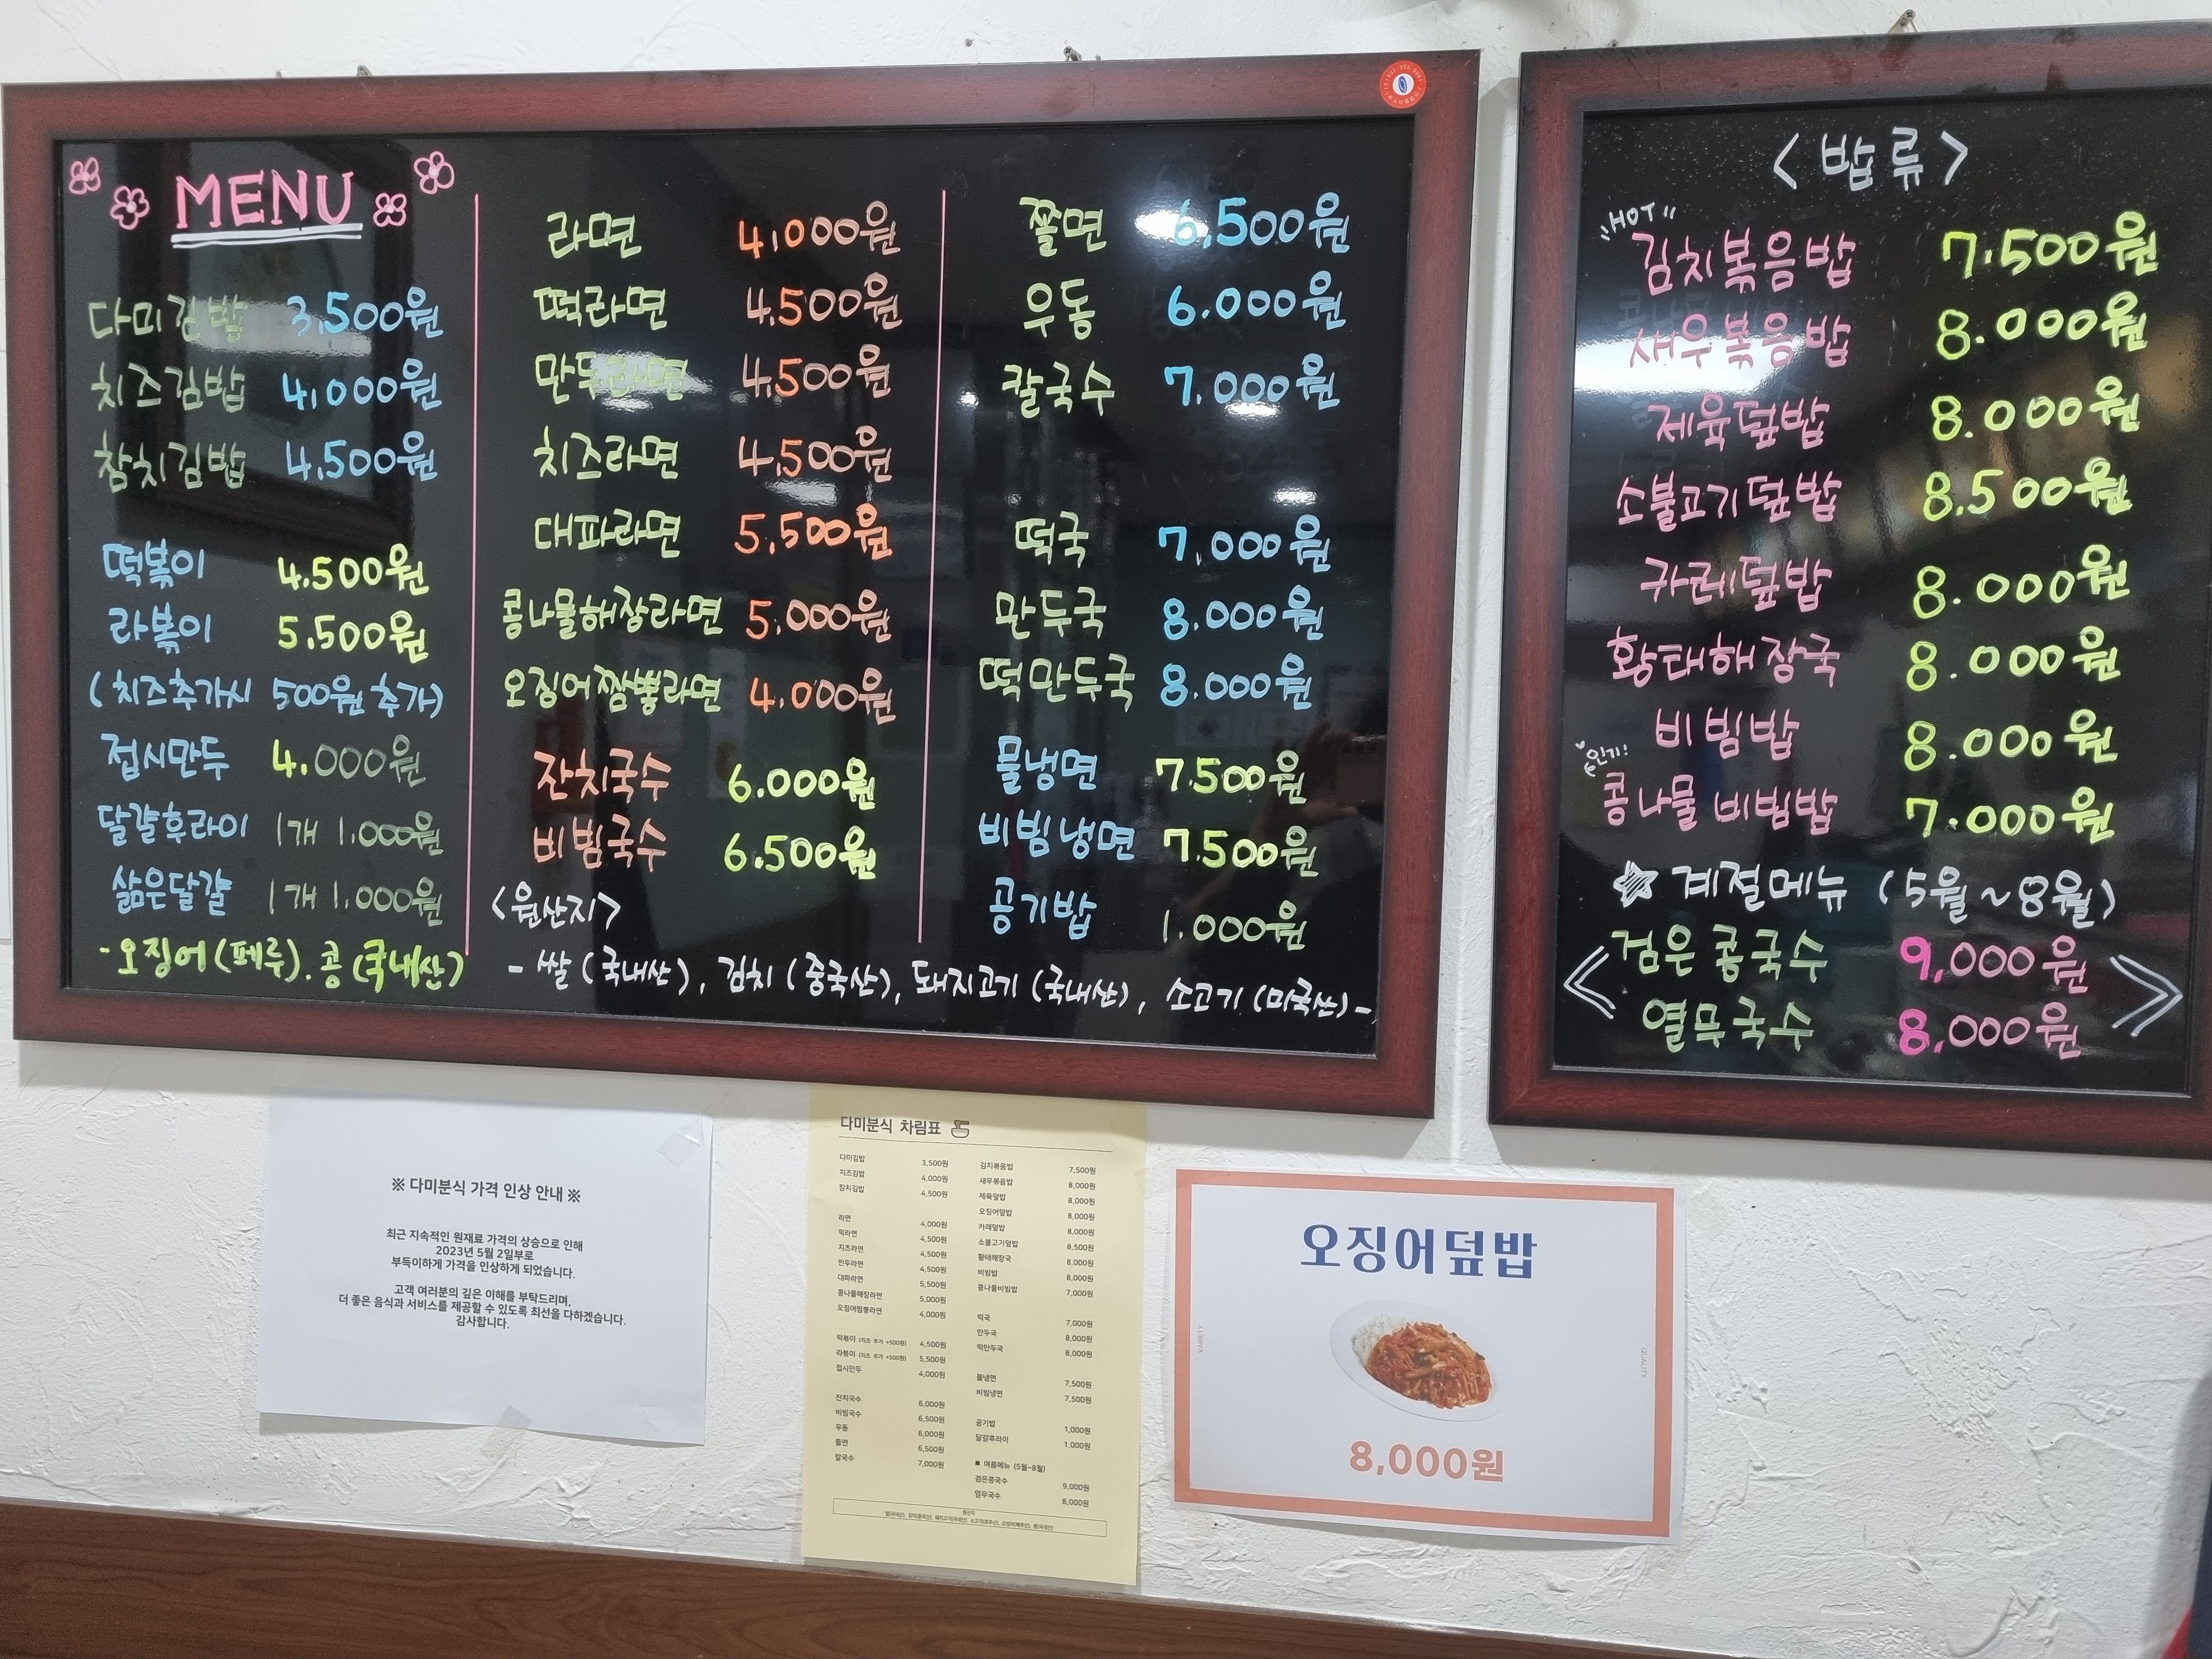 MENU
다미김밥 3,500원
치즈김밥 4,000원
참치김밥 4,500원
떡볶이 4.500원
라볶이 5.500원
(치즈추가시 500원 추가)
접시만두 4.000원
달걀후라이 1개 1.000원
삶은달걀 1개 1.000원
-오징어(페루). 콩(국내산)
라면 4,000원
떡라면 4.500원
만두라면 4,500원
치즈라면 4,500원
대파라면 5,500원
콩나물해장라면 5,000원
오징어짬뽕라면 4.000원
잔치국수 6.000원
비빔국수 6.500원
<원산지>
- 쌀(국내산), 김치(중국산), 돼지고기(국내산), 소고기(미국산)-
쫄면 6,500원
우동 6.000원
칼국수 7.000원
떡국 7,000원
만두국 8.000원
떡만두국 8.000원
물냉면 7.500원
비빔냉면 7.500원
공기밥 1.000원
<밥류>
"HOT"
김치볶음밥 7.500원
새우볶음밥 8.000원
제육덮밥 8.000원
소불고기덮밥 8.500원
카레덮밥 8.000원
황태해장국 8.000원
비빔밥 8.000원
인기!
콩나물 비빔밥 7.000원
계절메뉴 (5월~8월)
검은콩국수 9,000원
열무국수 8,000원
※ 다미분식 가격 인상 안내 ※
최근 지속적인 원재료 가격의 상승으로 인해
2023년 5월 2일부로
부득이하게 가격을 인상하게 되었습니다.
고객 여러분의 깊은 이해를 부탁드리며,
더 좋은 음식과 서비스를 제공할 수 있도록 최선을 다하겠습니다.
감사합니다.
다미분식 차림표
다미김밥 3,500원
치즈김밥 4,000원
참치김밥 4,500원
라면 4,000원
떡라면 4,500원
치즈라면 4,500원
만두라면 4,500원
대파라면 5,500원
콩나물해장라면 5,000원
오징어짬뽕라면 4,000원
떡볶이 (치즈 추가 +500원) 4,500원
라볶이 (치즈 추가 +500원) 5,500원
접시만두 4,000원
잔치국수 6,000원
비빔국수 6,500원
우동 6,000원
쫄면 6,500원
칼국수 7,000원
김치볶음밥 7,500원
새우볶음밥 8,000원
제육덮밥 8,000원
오징어덮밥 8,000원
카레덮밥 8,000원
소불고기덮밥 8,500원
황태해장국 8,000원
비빔밥 8,000원
콩나물비빔밥 7,000원
떡국 7,000원
만두국 8,000원
떡만두국 8,000원
물냉면 7,500원
비빔냉면 7,500원
공기밥 1,000원
달걀후라이 1,000원
■ 여름메뉴 (5월~8월)
검은콩국수 9,000원
열무국수 8,000원
원산지
오징어덮밥
VARIETY
QUALITY
8,000원